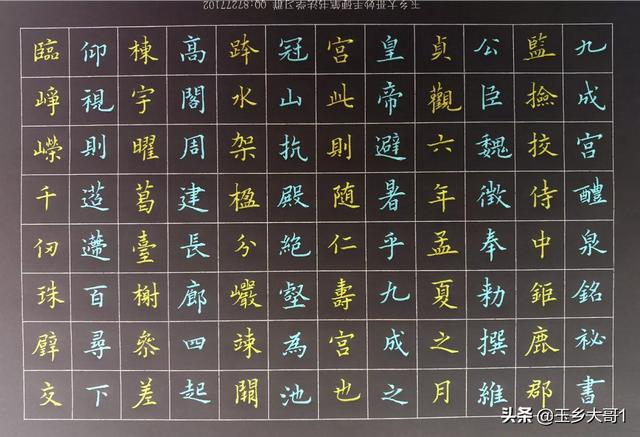 九成宮醴泉銘祕書
監撿挍侍中鉅鹿郡
公臣魏徵奉勅撰維
貞觀六年孟夏之月
皇帝避暑乎九成之
宮此則随仁壽宮也
冠山抗殿絕壑為池
跨水架楹分巖竦闕
高閣周建長廊四起
棟宇曜葛臺榭參差
仰視則迢遰百尋下
臨崢嶸千仞珠璧交
头条 @玉乡大哥1